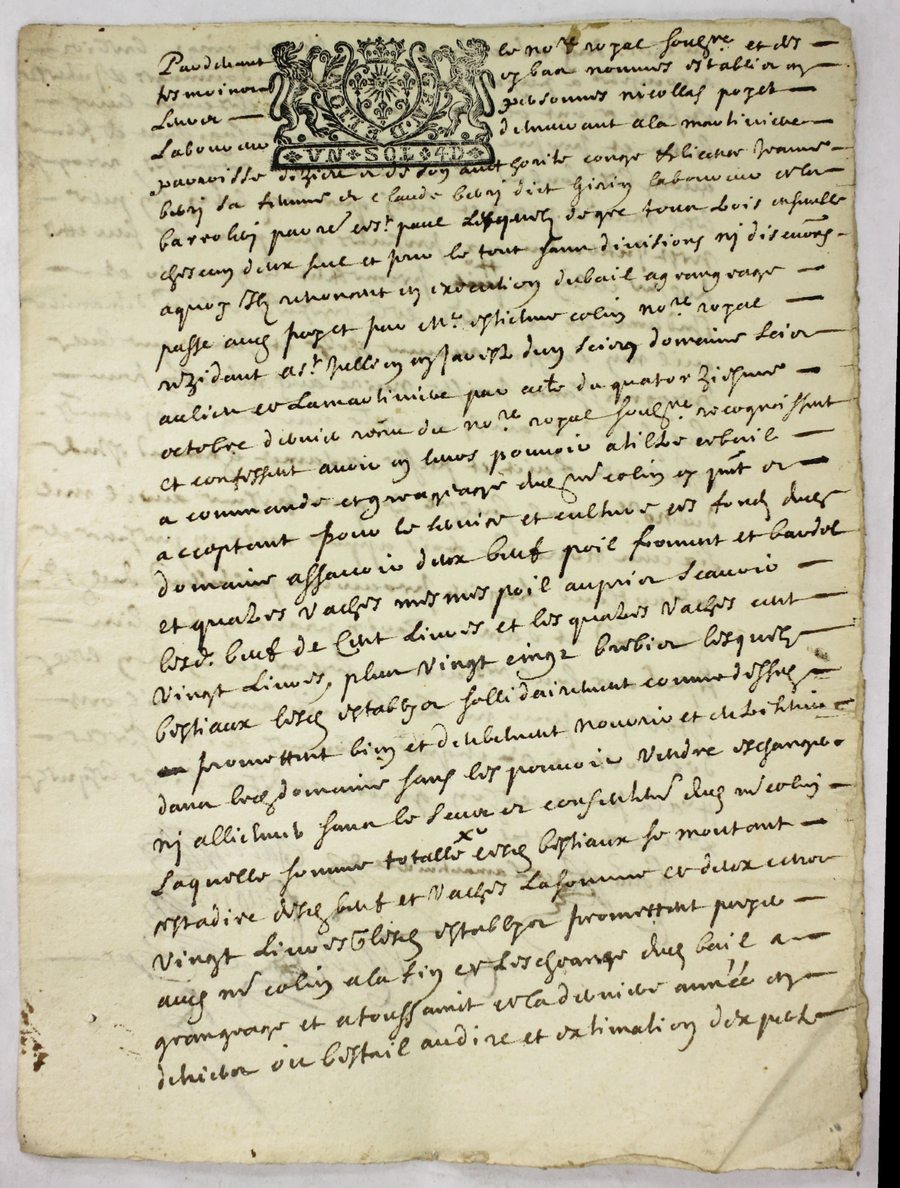 Pardevant le no.re royal soubz.ne et des
tesmoings cy bas nommes establis en
leurs personnes nicollas poyet
Laboureur demeurant a la martiniere
parroisse dizieu et de son authorite conge & licence Jeanne
UN·SOL·4D
GEN·D·ETION
sa femme et Claude dict laboureur de la
par st paul lesquelz de gré tous trois ensemble
chescun deux seul et pour le tout sans divisions nj discu͠ons
a quoy Ilz renoncent en execution du bail a grangeage
passe avec poyet par M.e estienne colin no.re royal
rezidant a st Jullien en Jarestz dun sien domaine scis
au lieu de Lamartiniere par acte du quatorziesme
octobre dernier receu du no.re royal soubz.ne recognoissent
et confessent avoir en leurs pouvoir a tiltre de bail
a commande et grangeage dud. m.e colin cy p͞nt et
acceptant pour le service et culture des fondz dud.
domaine assavoir deux beufz poil froment et bardel
et quatres vaches mesmes poil au prix scavoir
lesd. beufz de Cent Livres et les quatres vaches cent
vingt Livres, plus vingt cinq brebis lesquelz
bestiaux lesd. establys sollidairement comme dessus
promettent bien et deubement nourrir et entretenir
dans led. domaine sans les pouvoir vendre eschanger
nj alliener sans le sceu et consentem.t dud. m.e colin
Laquelle somme totalle desd. bestiaux se montant
cestadire desd. beufz et vaches La somme de deux cents
vingt Livres lesd. establys promettent payer
aud. m.e colin a la fin de Leschange dud. bail a
grangeage et a toussainct de la derniere année en
deniers ou bestail au dire et extimation dexpertz